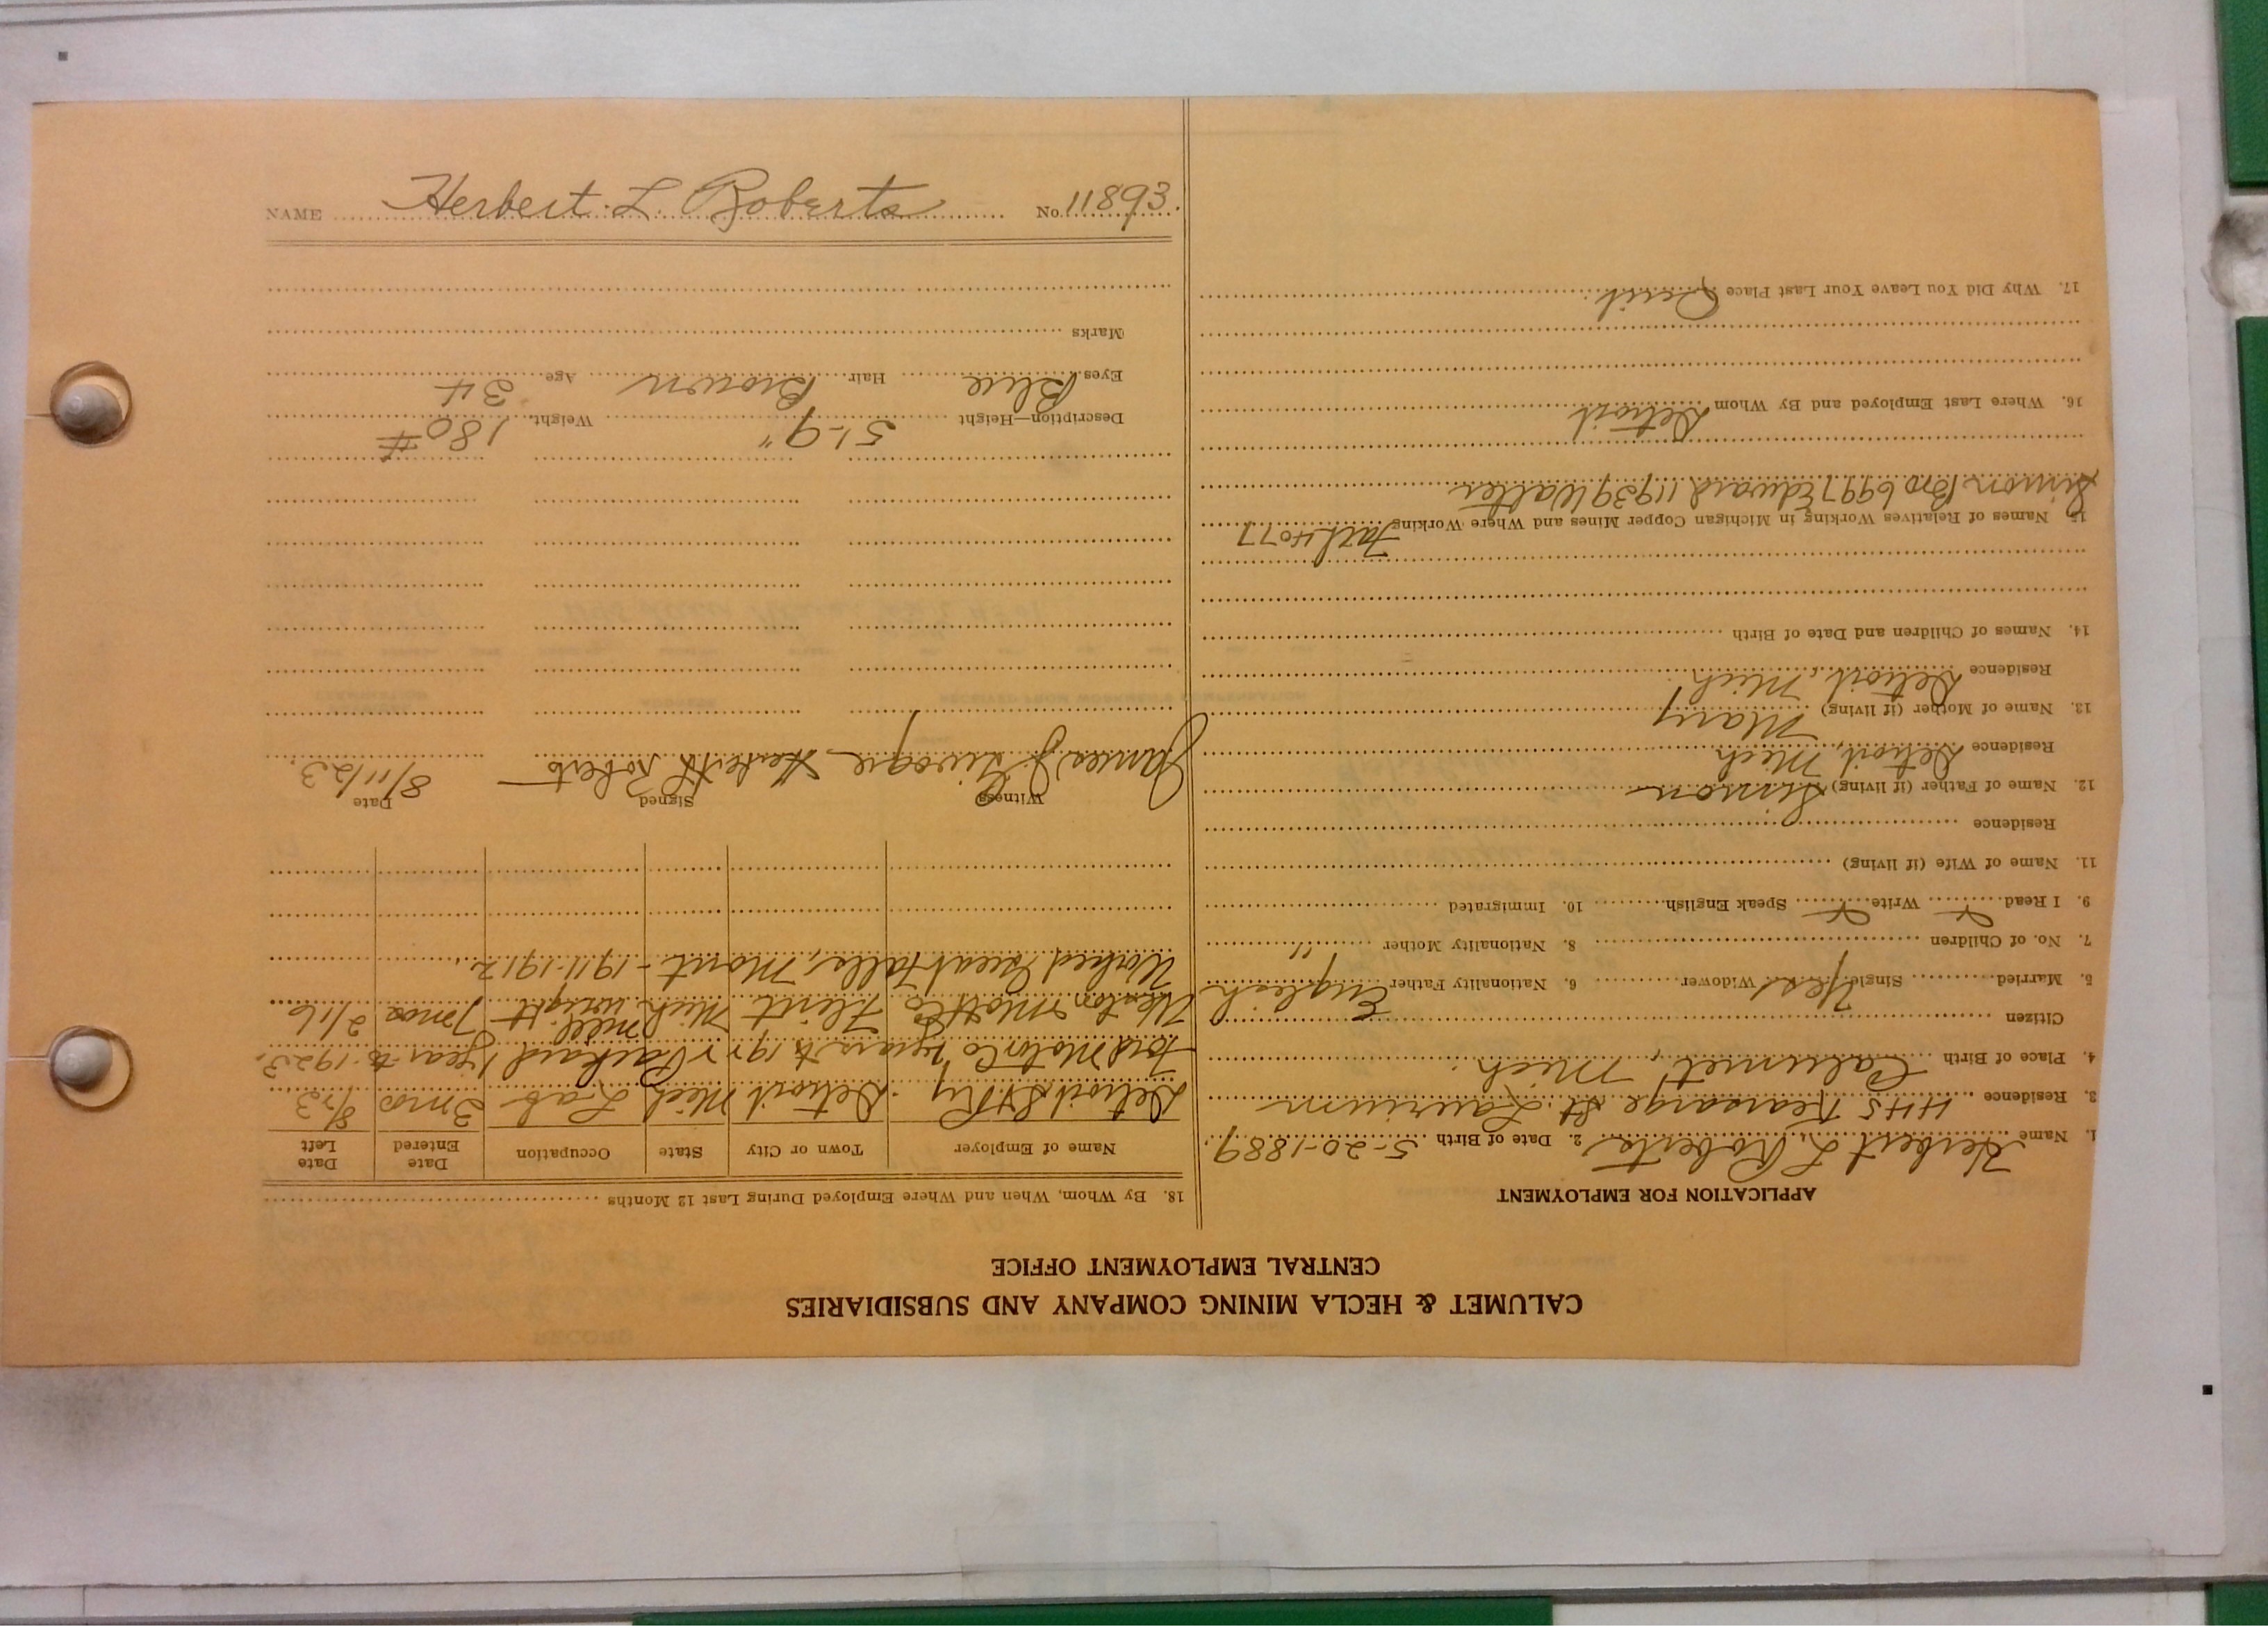 NAME Herbert. L. Roberts No. 11893.
CALUMET & HECLA MINING COMPANY AND SUBSIDIARIES
CENTRAL EMPLOYMENT OFFICE
APPLICATION FOR EMPLOYMENT
1. Name Herbert L. Roberts 2. Date of Birth 5-20-1889.
3. Residence 445 Kearsarge St. Laurium
4. Place of Birth Calumet, Mich.
Citizen
5. Married Single Yes Widower 6. Nationality Father English
7. No. of Children 8. Nationality Mother "
9. I Read Write Speak English 10. Immigrated
11. Name of Wife (if living)
Residence
12. Name of Father (if living) Simon
Residence Detroit, Mich
13. Name of Mother (if living) Mary
Residence Detroit, Mich.
14. Names of Children and Date of Birth
15. Names of Relatives Working in Michigan Copper Mines and Where Working Fath 4077
Simon Bro 6997 Edward 11939 Walter
16. Where Last Employed and By Whom Detroit
17. Why Did You Leave Your Last Place Quit.
18. By Whom, When and Where Employed During Last 12 Months
Name of Employer Town or City State Occupation Date Entered Date Left
Detroit St Ry. Detroit Mich Lab 3 mos 8/23
Ford Motor Co years to 192 Packard 1 year to 1923.
Weston Mott Co Flint Mich Mill wright 7 mos 2/16
Worked Great Falls, Mont - 1911-1912
Witness Signed Date
James J. Herbert L Roberts 8/11/23.
Description—Height 5'-9" Weight 180 #
Eyes Blue Hair Brown Age 34
Marks